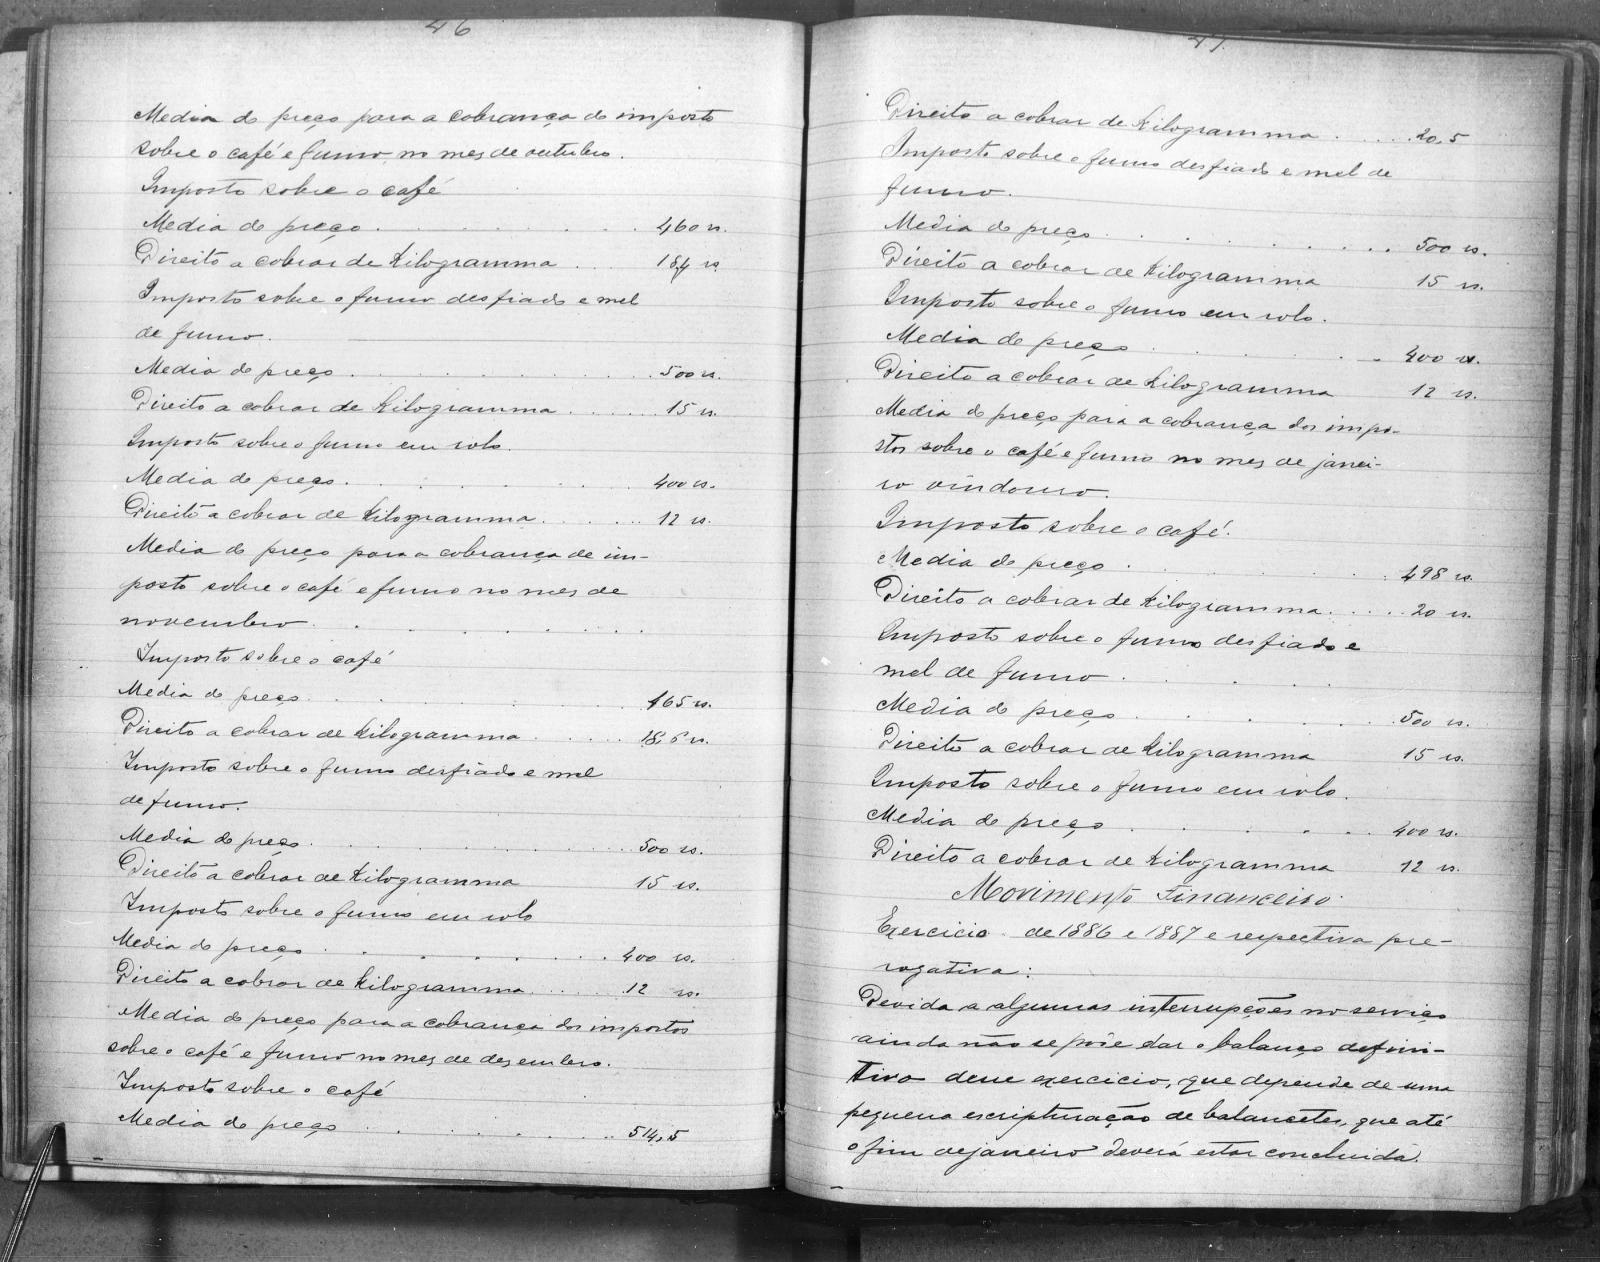 46
Media do preço para a cobrança do imposto
sobre o café e fumo, no mez de outubro.
Imposto sobre o café
Media do preço . . . . . . . . 460 rs.
Direito a cobrar de Kilogramma . . . 18,4 rs.
Imposto sobre o fumo desfiado e mel
de fumo.
Media do preço . . . . . . . . 500 rs.
Direito a cobrar de Kilogramma . . . . . 15 rs.
Imposto sobre o fumo em rolo.
Media do preço . . . . . . . . 400 rs.
Direito a cobrar de Kilogramma . . . . . 12 rs.
Media do preço para a cobrança de im-
posto sobre o café e fumo no mez de
novembro . . . . . . . .
Imposto sobre o café
Media do preço . . . . . . . . 465 rs.
Direito a cobrar de Kilogramma . . . . . 18,6 rs.
Imposto sobre o fumo desfiado e mel
de fumo.
Media do preço . . . . . . . . 500 rs.
Direito a cobrar de Kilogramma 15 rs.
Imposto sobre o fumo em rolo
Media do preço . . . . . . . 400 rs.
Direito a cobrar de Kilogramma . . . . 12 rs.
Media do preço para a cobrança dos impostos
sobre o café e fumo no mez de dezembro.
Imposto sobre o café
Media do preço . . . . . . . . 514,5
47.
Direito a cobrar de Kilogramma . . . . 20,5
Imposto sobre o fumo desfiado e mel de
fumo.
Media do preço . . . . . . . . 500 rs.
Direito a cobrar de Kilogramma 15 rs.
Imposto sobre o fumo em rolo.
Media do preço . . . . . . 400 rs.
Direito a cobrar de Kilogramma 12 rs.
Media do preço para a cobrança dos impo-
stos sobre o café e fumo no mez de janei-
ro vindouro.
Imposto sobre o café.
Media do preço . . . . . . . 498 rs.
Direito a cobrar de Kilogramma . . . . . 20 rs.
Imposto sobre o fumo desfiado e
mel de fumo . . . .
Media do preço . . . . . . . 500 rs.
Direito a cobrar de Kilogramma 15 rs.
Imposto sobre o fumo em rolo.
Media do preço . . . . . . 400 rs.
Direito a cobrar de Kilogramma 12 rs.
Movimento Financeiro.
Exercicio de 1886 e 1887 e respectiva pre-
rogativa:
Devida a algumas interrupções no serviço
ainda não se pôde dar o balanço defini-
tivo desse exercicio, que depende de uma
pequena escripturação de balancetes, que até
o fim de janeiro deverá estar concluida.